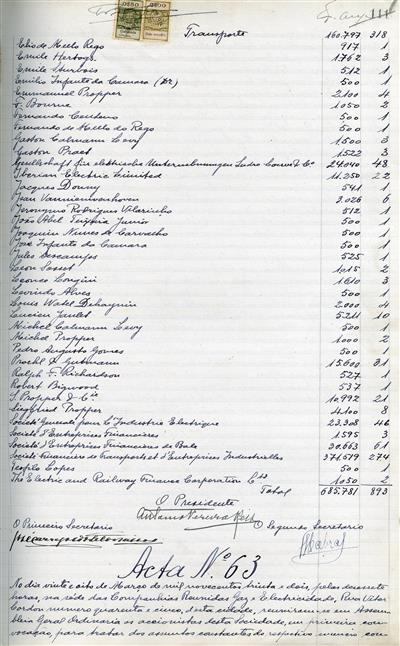 111
Transporte 160.797 318
Elio de Mello Rego 917 1
Emile Hertogs 1762 3
Emile Sturbois 512 1
Emilio Infante da Camara (Dr) 500 1
Emmanuel Propper 2.100 4
F. Bourne 1050 2
Fernando Centeno 500 1
Fernando de Mello do Rego 500 1
Gaston Calmann Levy 1500 3
Gaston Praet 1522 3
Gesellschaft für elektrische Unternehmungen Ludw. Loewe & Co 24.040 48
Iberian Electric Limited 11.250 22
Jacques Donny 541 1
Jean Vanniewenhoven 3.026 6
Jeronymo Rodrigues Vilarinho 512 1
João Abel Teixeira Junior 500 1
Joaquim Nunes de Carvalho 500 1
José Infante da Camara 500 1
Jules Descamps 525 1
Leon Sasset 1015 2
Leonce 1610 3
Levindo Alves 500 1
Louis Watel Dehaynin 2.000 4
Lucien Jaulet 5211 10
Michel Calmann Levy 500 1
Michel Propper 1000 2
Pedro Augusto Gomes 500 1
Prochl & Gutmann 15.600 31
Ralph F. Richardson 527 1
Robert Bigwood 537 1
S. Propper & Cie 10.992 21
Siegfried Propper 4100 8
Societé Generale pour l'Industrie Electrique 23.308 46
Societé d'Entreprises Financieres 1595 3
Societé d'Entreprises Financieres de Bale 30.663 61
Societé Financiere de Transports et d'Entreprises Industrielles 371.679 274
Teofilo Lopes 500 1
The Electric and Railway Finance Corporation Ltd 1050 2
Total 685.781 893
O Presidente
Antonio Pereira Reis
O Primeiro Secretario O Segundo Secretario
Acta Nº 63
No dia vinte e oito de Março de mil novecentos trinta e dois, pelas dezesete
horas, na séde das Companhias Reunidas Gaz e Electricidade, Rua Vitor
Cordon numero quarenta e cinco, desta cidade, reuniram-se em Assem-
bleia Geral Ordinaria os accionistas desta Sociedade, em primeira con-
vocação, para tratar dos assuntos constantes do respectivo anuncio con-